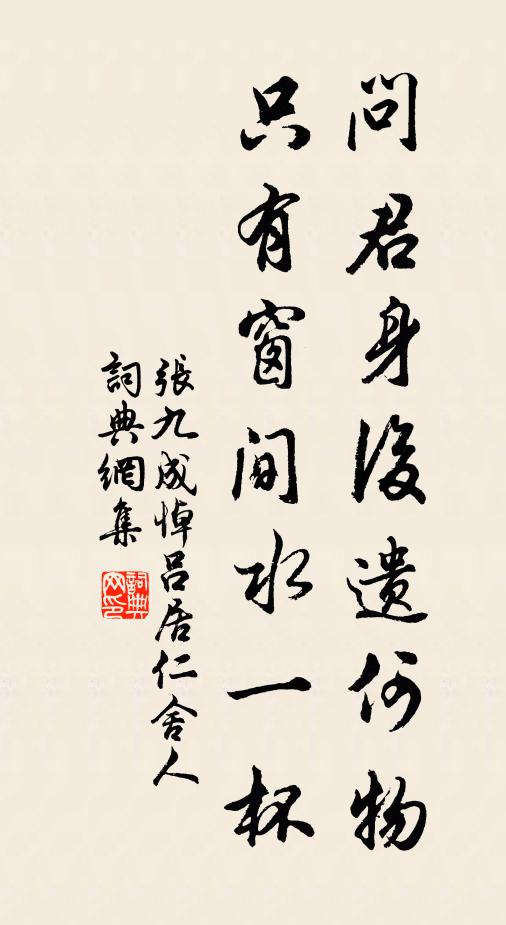 問君身後遺何物
只有窗間水一杯
張九成悼呂居仁舍人
詞典網集
詞典网印